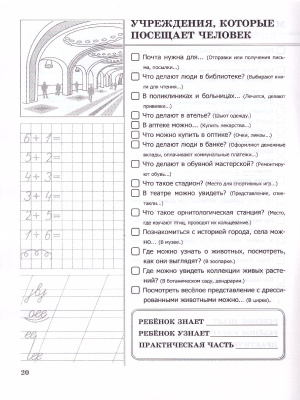 УЧРЕЖДЕНИЯ, КОТОРЫЕ
ПОСЕЩАЕТ ЧЕЛОВЕК
Почта нужна для... (Отправки или получения пись-
ма, посылки...)
Что делают люди в библиотеке? (Выбирают кни-
ги для чтения...)
В поликлиниках и больницах... (Лечатся, делают
прививки...)
Что делают в ателье? (Шьют одежду.)
В аптеке можно... (Купить лекарства.)
Что можно купить в оптике? (Очки, линзы...)
Что делают люди в банке? (Оформляют денежные
вклады, оплачивают коммунальные платежи...)
Что делают в обувной мастерской? (Ремонтиру-
ют обувь...)
Что такое стадион? (Место для спортивных игр...)
В театре можно увидеть? (Представление, спек-
такль...)
Что такое орнитологическая станция? (Место,
где изучают птиц, проводят их кольцевание.)
Познакомиться с историей города, села мож-
но... (В музее.)
Где можно узнать о животных, посмотреть,
как они выглядят? (В зоопарке.)
Где можно увидеть коллекции живых расте-
ний? (В ботаническом саду, дендрарии.)
Посмотреть весёлое представление с дресси-
рованными животными можно... (В цирке).
6+1=
5+2=
4+3=
3+4=
2+5=
1+6=
РЕБЁНОК ЗНАЕТ
РЕБЁНОК УЗНАЕТ
ПРАКТИЧЕСКАЯ ЧАСТЬ
20